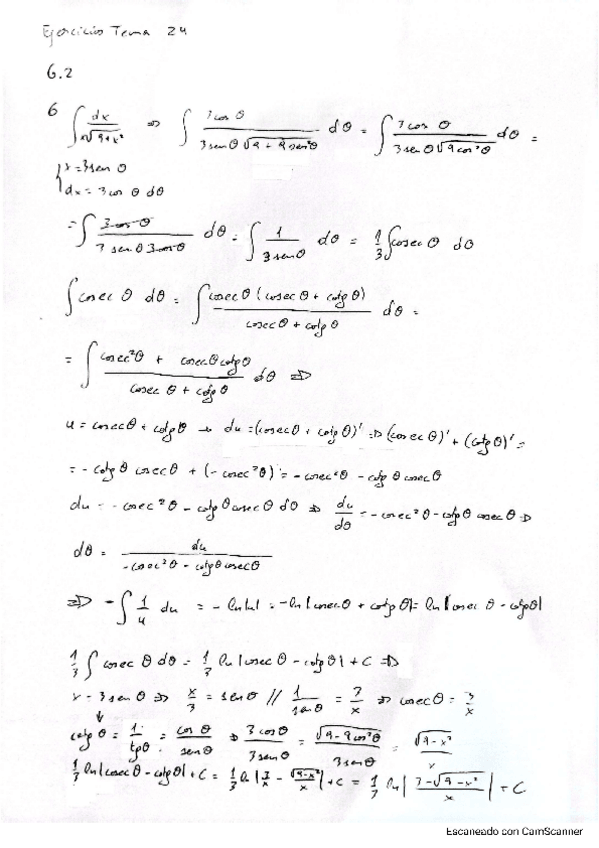 Ejercicios Tema 24
6.2
6 ∫ dx / x√(9+x²) ⇒ ∫ 3cos θ / (3sen θ √(9 + 9sen²θ)) dθ = ∫ 3cos θ / (3sen θ √(9cos²θ)) dθ =
x = 3sen θ
dx = 3cos θ dθ
= ∫ 3cos θ / (3 sen θ 3cos θ) dθ = ∫ 1 / (3 sen θ) dθ = 1/3 ∫ cosec θ dθ
∫ cosec θ dθ = ∫ cosec θ (cosec θ + cotg θ) / (cosec θ + cotg θ) dθ =
= ∫ (cosec²θ + cosec θ cotg θ) / (cosec θ + cotg θ) dθ ⇒
u = cosec θ + cotg θ → du = (cosec θ + cotg θ)' ⇒ (cosec θ)' + (cotg θ)' =
= - cotg θ cosec θ + (- cosec²θ) = - cosec²θ - cotg θ cosec θ
du = - cosec²θ - cotg θ cosec θ dθ ⇒ du/dθ = - cosec²θ - cotg θ cosec θ ⇒
dθ = du / (- cosec²θ - cotg θ cosec θ)
⇒ - ∫ 1/u du = - ln|u| = - ln|cosec θ + cotg θ| = ln|cosec θ - cotg θ|
1/3 ∫ cosec θ dθ = 1/3 ln|cosec θ - cotg θ| + C ⇒
x = 3 sen θ ⇒ x/3 = sen θ // 1/sen θ = 3/x ⇒ cosec θ = 3/x
↓
cotg θ = 1/tg θ = cos θ / sen θ ⇒ 3cos θ / 3sen θ = √(9 - 9cos²θ) / 3sen θ = √(9-x²) / x
1/3 ln|cosec θ - cotg θ| + C = 1/3 ln|3/x - √(9-x²)/x| + C = 1/3 ln|(3 - √(9-x²))/x| + C
Escaneado con CamScanner